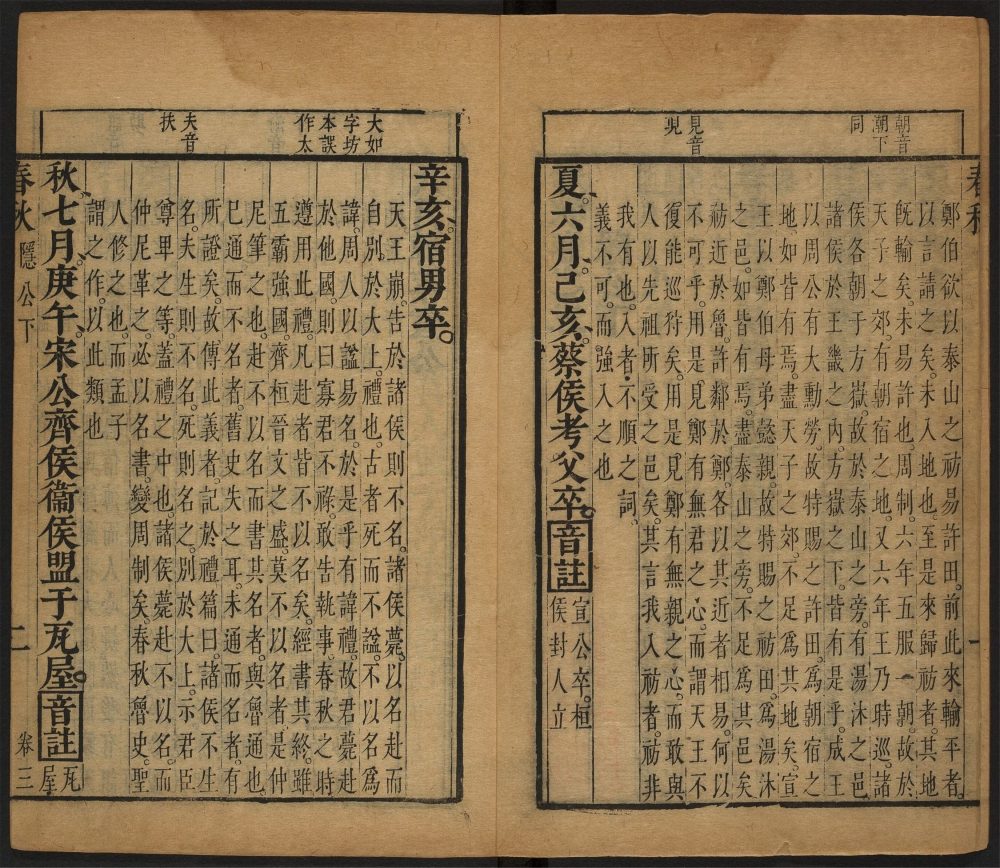 春秋
朝音
朝下
同
見音
現
鄭伯欲以泰山之祊易許田。前此來輸平者。
以言請之矣。未入地也。至是來歸祊者。其地
旣輸矣。未易許也。周制。六年五服一朝。故於
天子之郊。有朝宿之地。又六年王乃時巡。諸
侯各朝于方嶽。故於泰山之旁。有湯沐之邑。
諸侯於王畿之內。方嶽之下。皆有是乎。成王
以周公有大勳勞。故特賜之許田。爲朝宿之
地。如皆有焉。盡天子之郊。不足爲其地矣。宣
王以鄭伯母弟懿親。故特賜之祊田。爲湯沐
之邑。如皆有焉。盡泰山之旁。不足爲其邑矣
祊近於魯。許鄰於鄭。各以其近者相易。何以
不可乎。用是見鄭有無君之心。而謂天王不
復能巡狩矣。用是見鄭有無親之心。而敢與
人以先祖所受之邑矣。其言我入祊者。祊非
我有也。入者。不順之詞。
義不可。而強入之也
夏。六月。己亥。蔡侯考父卒。音註宣公卒。桓
侯封人立
一
大如
字坊
本誤
作太
夫音
扶
辛亥。宿男卒。
天王崩。告於諸侯則不名。諸侯薨。以名赴而
自別於大上。禮也。古者死而不諡。不以名爲
諱。周人以諡易名。於是乎有諱禮。故君薨赴
於他國。則曰寡君不祿。敢告執事。春秋之時
遵用此禮。凡赴者皆不以名矣。經書其終。雖
五霸強國。齊桓晉文之盛。莫不以名者。是仲
尼筆之也。赴不以名而書其名者。與魯通也
巳通而不名者。舊史失之耳。未通而名者。有
所證矣。故傳此義者。記於禮篇曰。諸侯不生
名。夫生則不名。死則名之。別於大上。示君臣
尊卑之等。蓋禮之中也。諸侯薨赴不以名。而
仲尼革之。必以名書。變周制矣。春秋魯史。聖
人修之也。而孟子
謂之作。以此類也
秋。七月。庚午。宋公齊侯衞侯盟于瓦屋。音註瓦
屋
春秋 隱公下
二
卷三